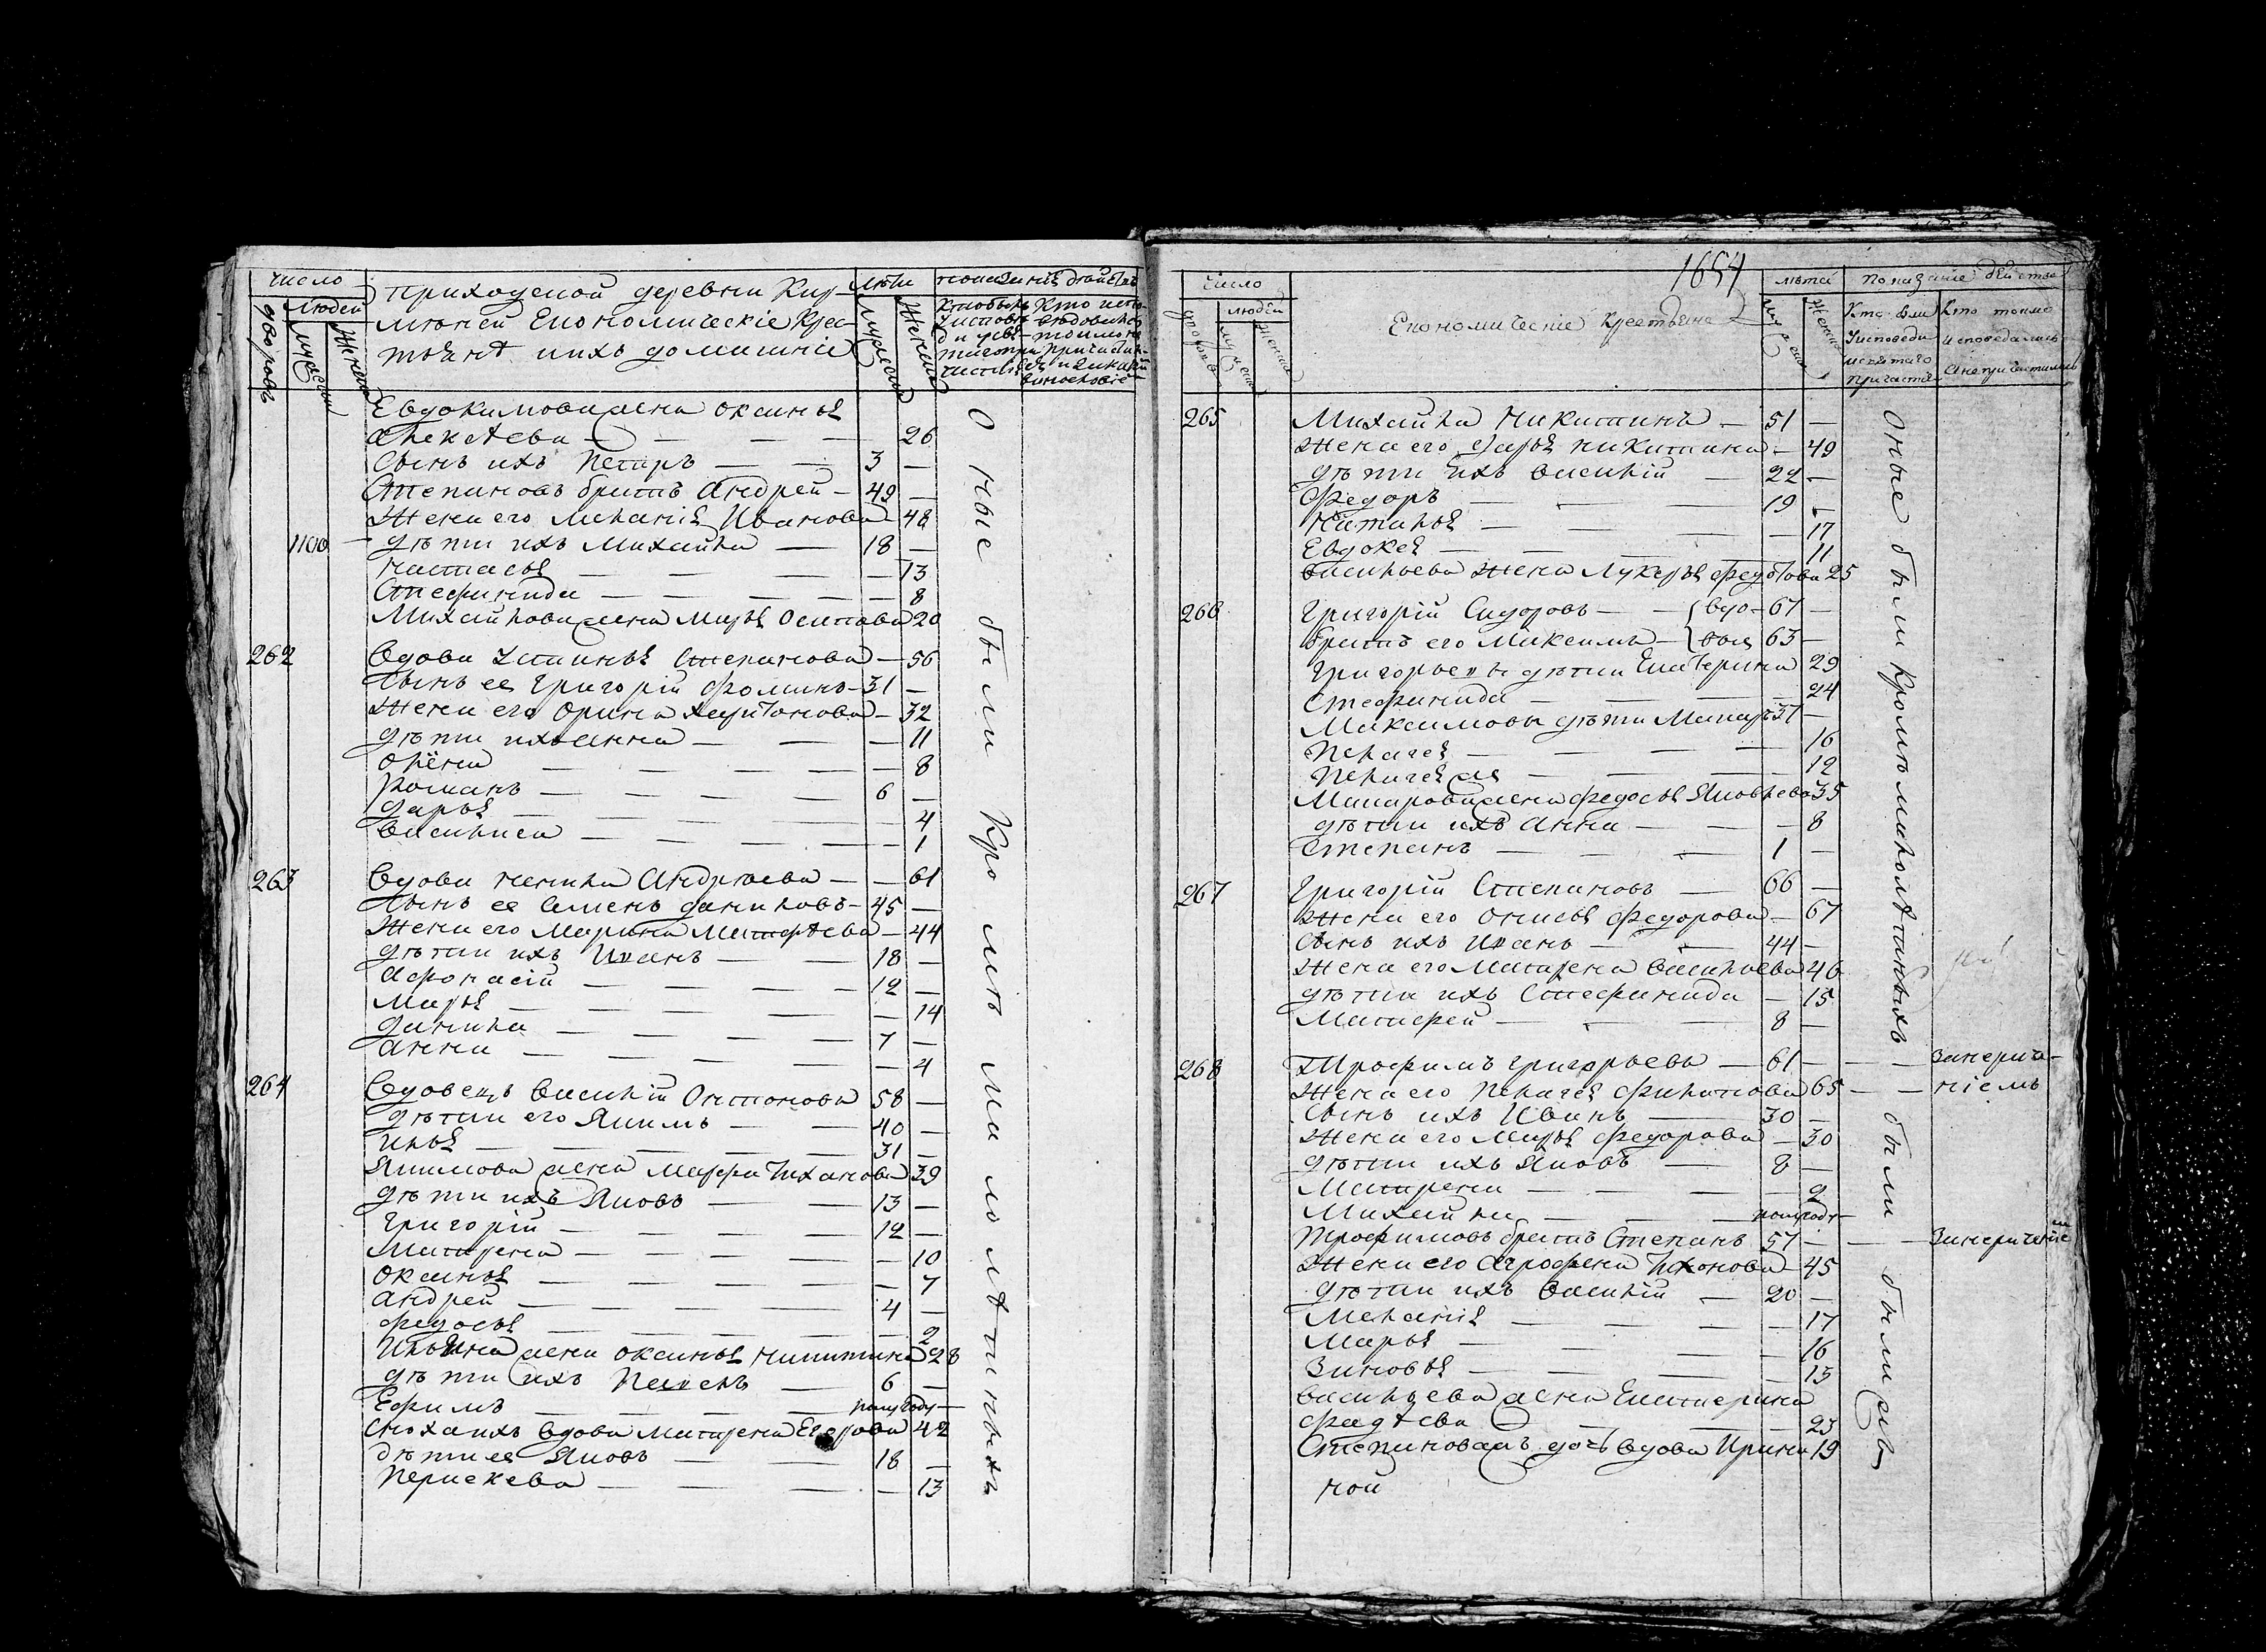 число
людей
дворовъ
мужеска
женска
Приходской деревни Кир-
Економическіе Крес-
тьянѣ ихъ домашніе
лѣта
мужеска
женска
Евдокимова жена Оксинья
Алексѣева — 26
Сынъ ихъ Петаръ — 3 —
Степановъ братъ Андрей — 49 —
Жена его Меланія Иванова — 48
1100 — дѣти ихъ Михайла — 18 —
Настасья — 13
Стефанида — 8
Михайлова жена Марья Осипова 20
262 Вдова Устинья Степанова — 56
Сынъ ея Григорій Фоминъ — 31 —
Жена его Орина Харитонова — 32
дѣти ихъ Анна — 11
Олёна — 8
Романъ — 6 —
Дарья — 4
Василиса — 1
263 Вдова Ненила Андрѣева — 61
Сынъ ея Семенъ Даниловъ — 45 —
Жена его Марина Матфѣева — 44
дѣти ихъ Иванъ — 18 —
Афонасій — 12 —
Марья — 14
Данила — 7 —
Анна — 4
264 Вдовецъ Василій Онтоновъ 58 —
дѣти его Якимъ — 40 —
Илья — 31 —
Якимова жена Марфа Тиханова 39
дѣти ихъ Яковъ — 13 —
Григорій — 12 —
Матрена — 10
Оксинья — 7
Андрей — 4 —
Федосья — 2
Ильина жена Оксинья Никитина 28
дѣти ихъ Пелень — 6 —
Ефимъ — полугоду —
Сноха ихъ вдова Матрена Егорова 42
дѣти ея Яковъ — 18 —
Пераскева — 13
Оные были Кромѣ малолѣтныхъ
1654
число
людей
дворовъ
мужеска
женска
Економическіе Крестьяне
лѣта
Показаніе действа
Кто были
У исповеди
и святаго
причастія
Кто токмо
исповедались
а непричастились
265 Михайла Никитинъ — 51 —
Жена его Дарья Никитина — 49
дѣти ихъ Василій — 22 —
Федоръ — 19 —
Наталья — 17
Евдокея — 11
Васильева жена Лукерья Федотова 25
266 Григорій Сидоровъ — вдо- 67 —
Братъ его Максимъ — вцы 63 —
Григорьевы дѣти Екатерина 29
Стефанида — 24
Максимовы дѣти Макаръ 37 —
Пелагея — 16
Пелагея жъ — 12
Макарова жена Федосья Яковлева 35
дѣти ихъ Анна — 8
Степанъ — 1 —
267 Григорій Степановъ — 66 —
Жена его Онисья Федорова — 67
Сынъ ихъ Иванъ — 44 —
Жена его Матрена Васильева 46
дѣти ихъ Стефанида — 15
Матфей — 8 —
268 Трофимъ Григорьевъ — 61 — — — занерачѣ-
Жена его Пелагея Филатова 65 — — ніемъ
Сынъ ихъ Иванъ — 30 —
Жена его Марья Федорова — 30
дѣти ихъ Яковъ — 8 —
Матрена — 2
Михайла — полугоду —
Трофимовъ братъ Степанъ 57 — — —
Жена его Агрофена Тихонова 45
дѣти ихъ Василій — 20 —
Меланія — 17
Марья — 16
Зиновья — 13
Васильева жена Екатерина
Фадѣева — 23
Степанова жъ дочь вдова Ирина 19
Оные были Кромѣ малолѣтныхъ